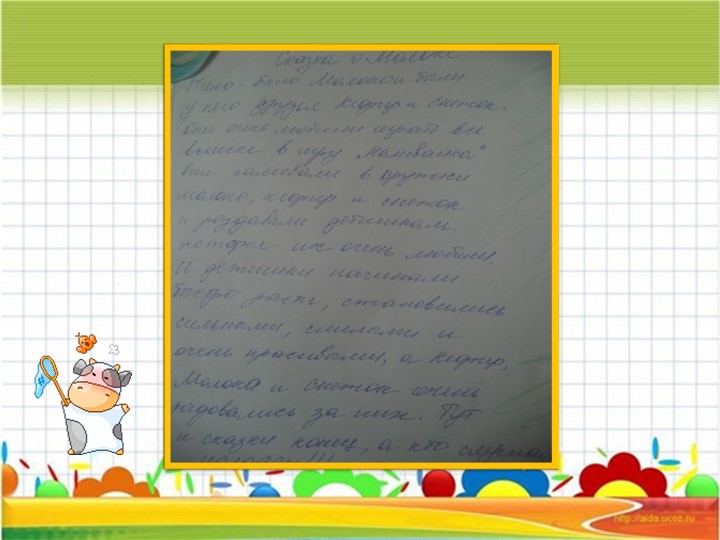 Сказка о Молоке
Жило-было Молоко и были
у него друзья Кефир и Снежок.
Они очень любили играть все
вместе в игру „Наливайка"
Они наливали в кружки
молоко, кефир и снежок
и раздавали детишкам.
которые их очень любили.
И детишки начинали
быстро расти, становились
сильными, смелыми и
очень красивыми, а Кефир,
Молоко и Снежок очень
радовались за них. Тут
и сказки конец, а кто слушал
молодец!!!
http://aida.ucoz.ru